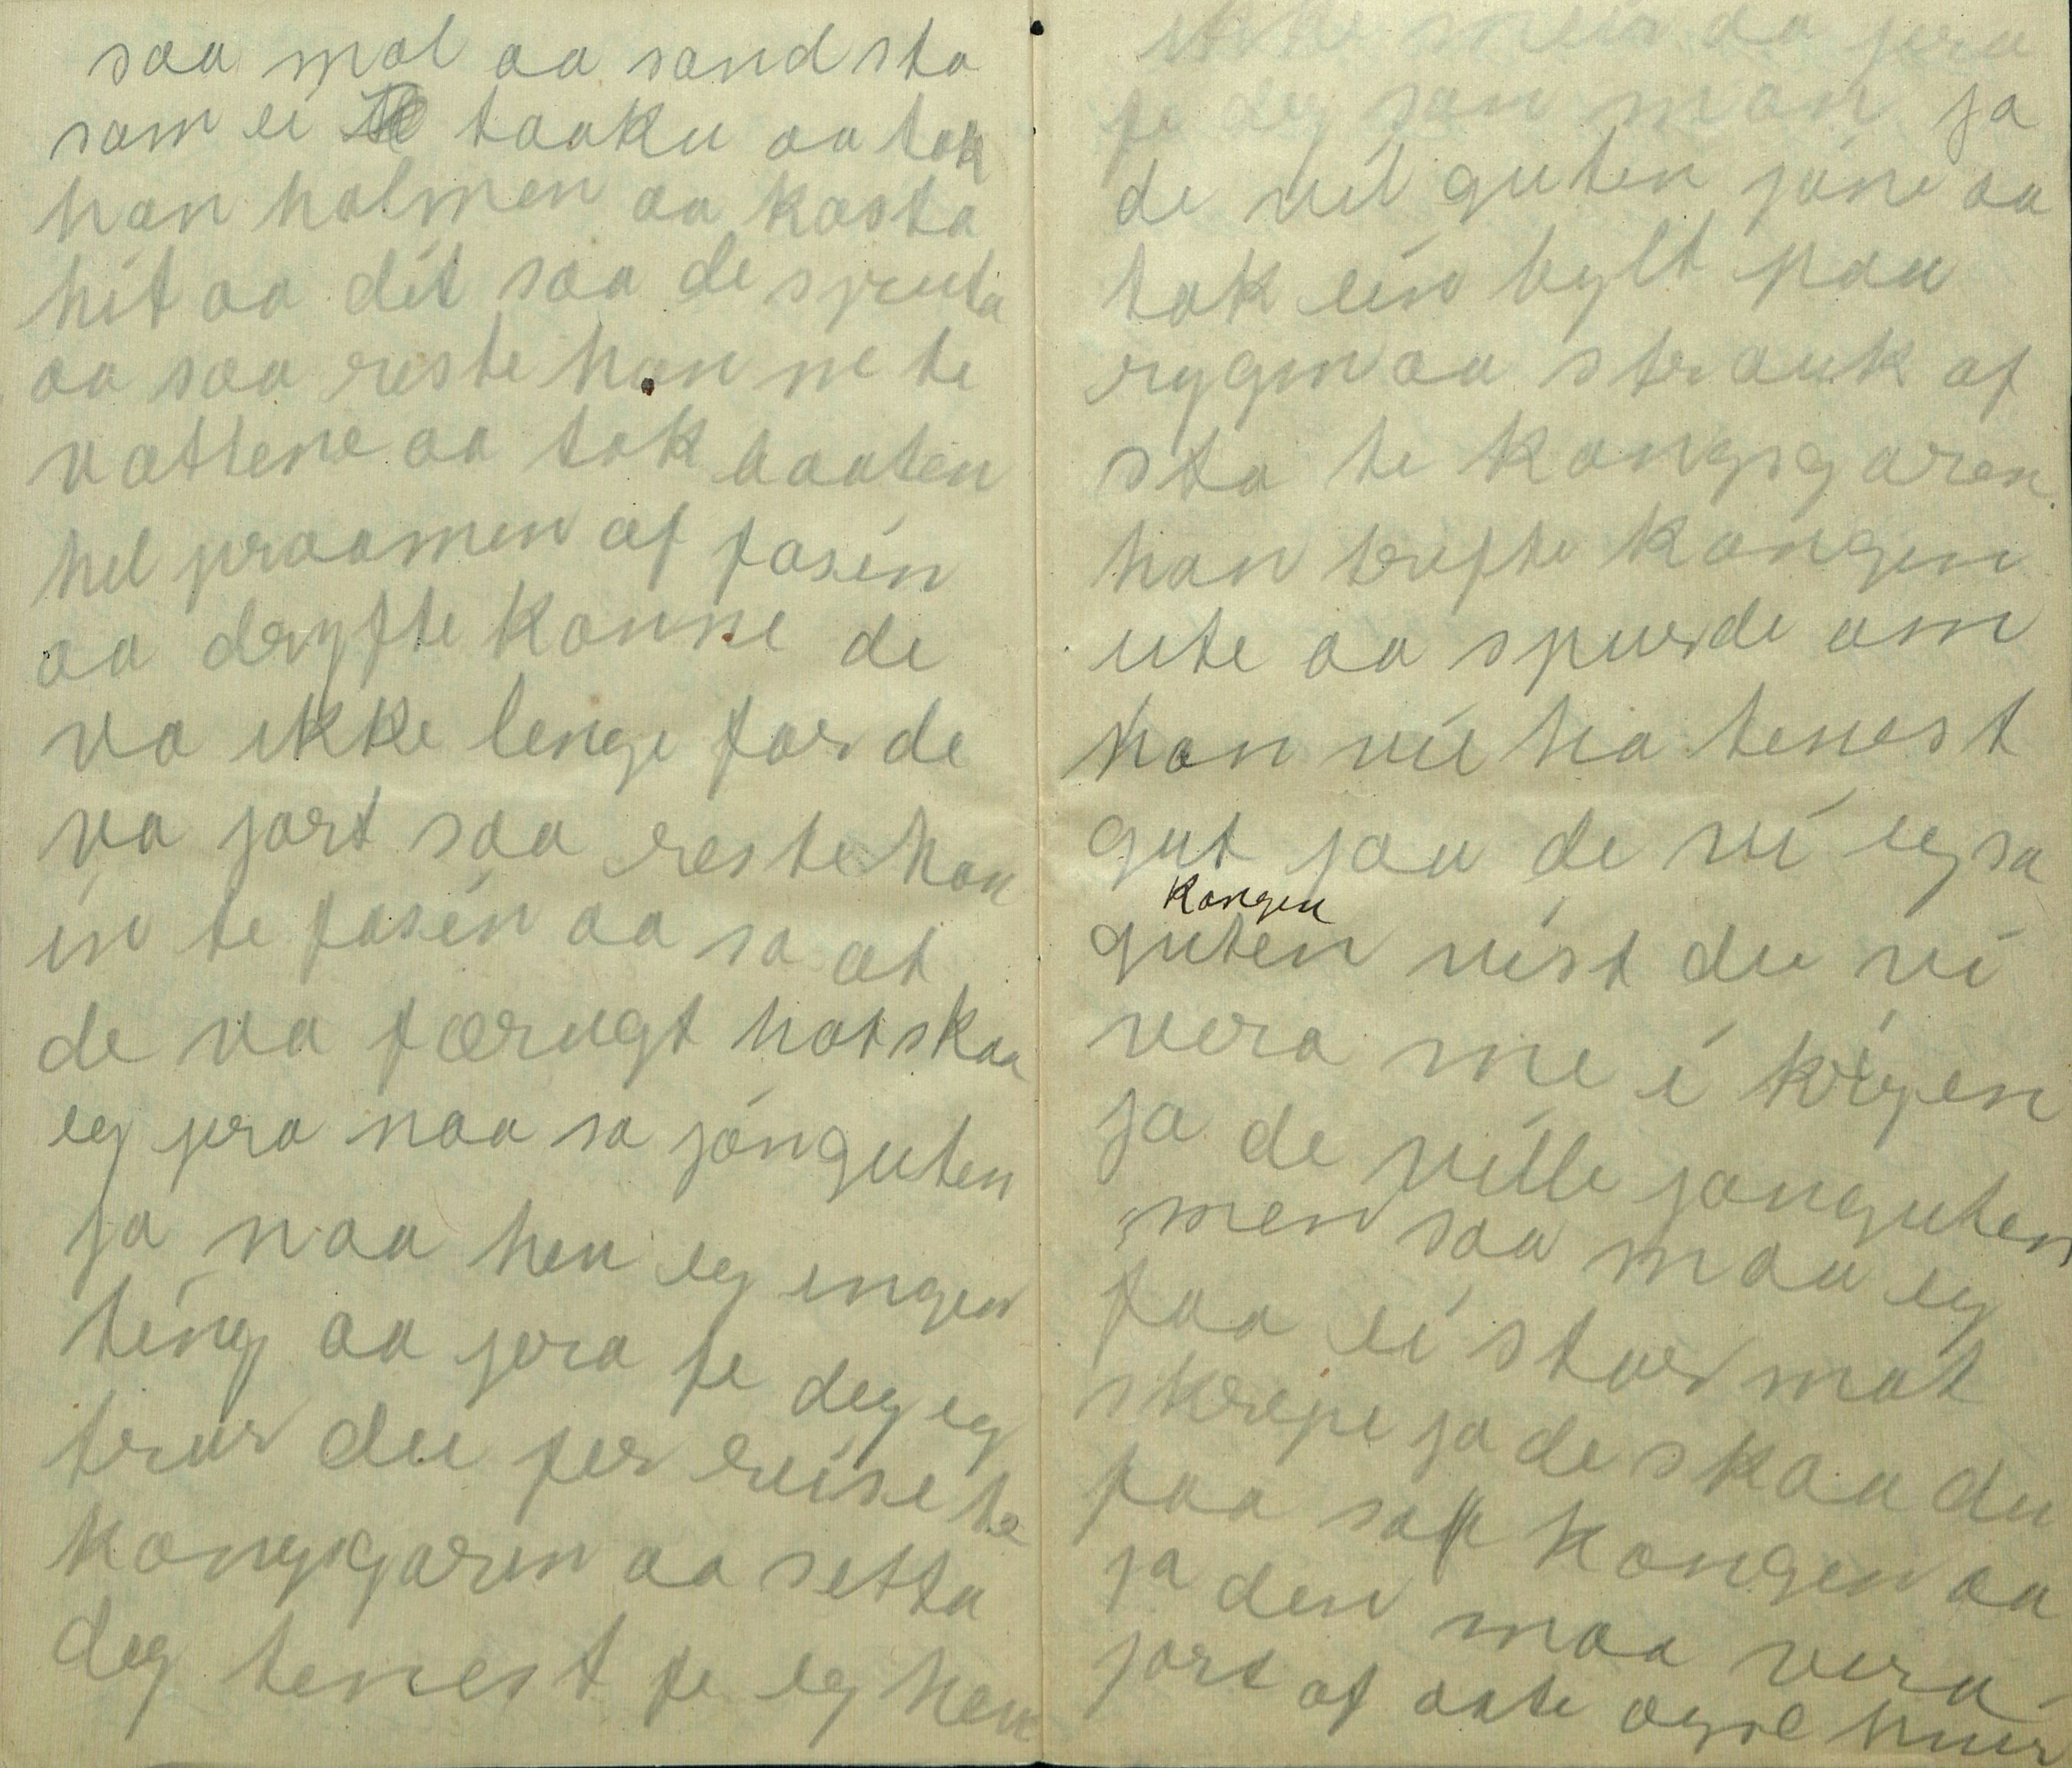 saa mol aa sand sto
som ei taaku aa tok
han holmen aa kasta
hit aa dit saa de spruta
aa saa reiste han ne te
vattene aa tok baaten
hel praamen af fasén
aa dryfte konne de
va ikke lenge for de
va jort saa reiste han
in te fasén aa sa at
de va færugt hot skaa
eg jera naa sa jónguten
ja naa heu eg ingen
ting aa jera te deg eg
trur du fer reise te
kongsgaren aa setta
deg tenest fe eg heu
ikke meir aa jera
te deg son man ja
de vil guten jóne aa
tok ein bylt paa
rygen aa strauk af
sta te kongsgaren.
han trefte kongen
ute aa spurde om
han vil ha tenest
gut jaa de vi eg sa
kongen
guten vist du vi
vera me i krigen
ja de ville jonguten
men saa maa eg
faa ei stor mat
skrepe ja de skaa du
faa sa kongen aa
ja den maa vera
jort af aate huir